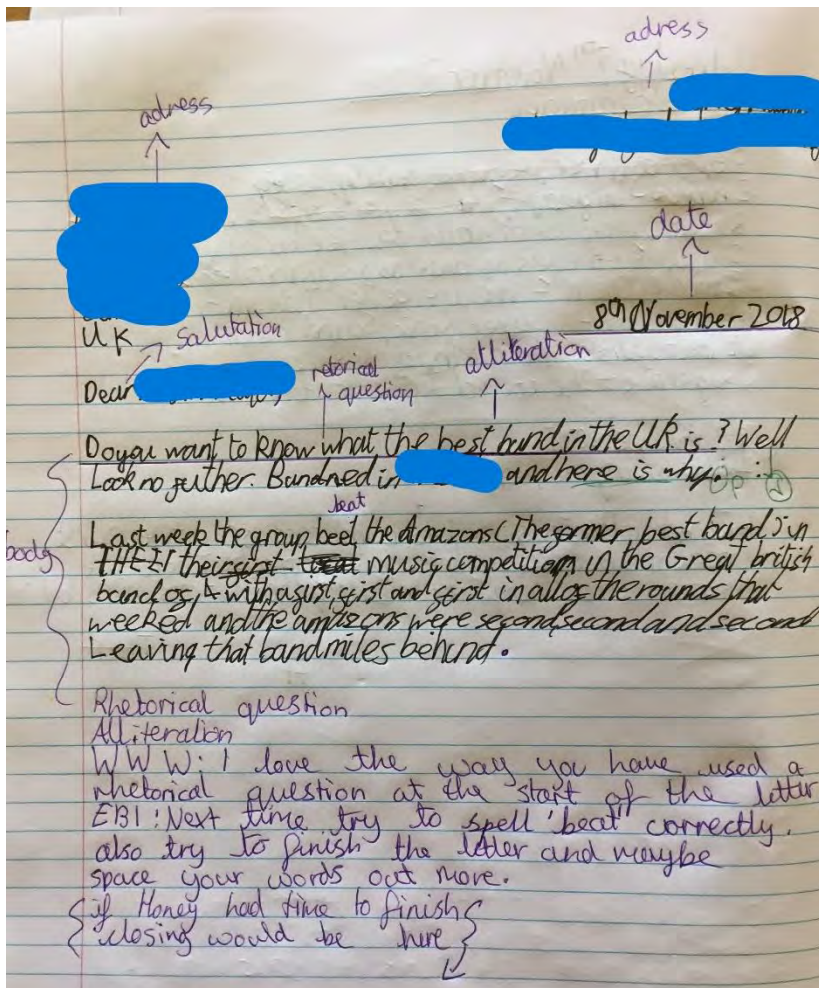 adress
adress
date
8th November 2018
UK
Salutation
Dear
retorical
question
alliteration
Do you want to know what the best band in the UK is? Well
Look no futher. Bandned in and here is why.
beat
Last week the group beet the Amazons (The former best band) in
THEIr their first music competition in the Great british
band of, with a first, first and first in all of the rounds that
weeked and the amazons were second, second and second
Leaving that band miles behind.
body
Rhetorical question
Alliteration
WWW: I love the way you have used a
rhetorical question at the start of the letter
EBI: Next time try to spell 'beat' correctly.
also try to finish the letter and maybe
space your words out more.
if Honey had time to finish
closing would be here